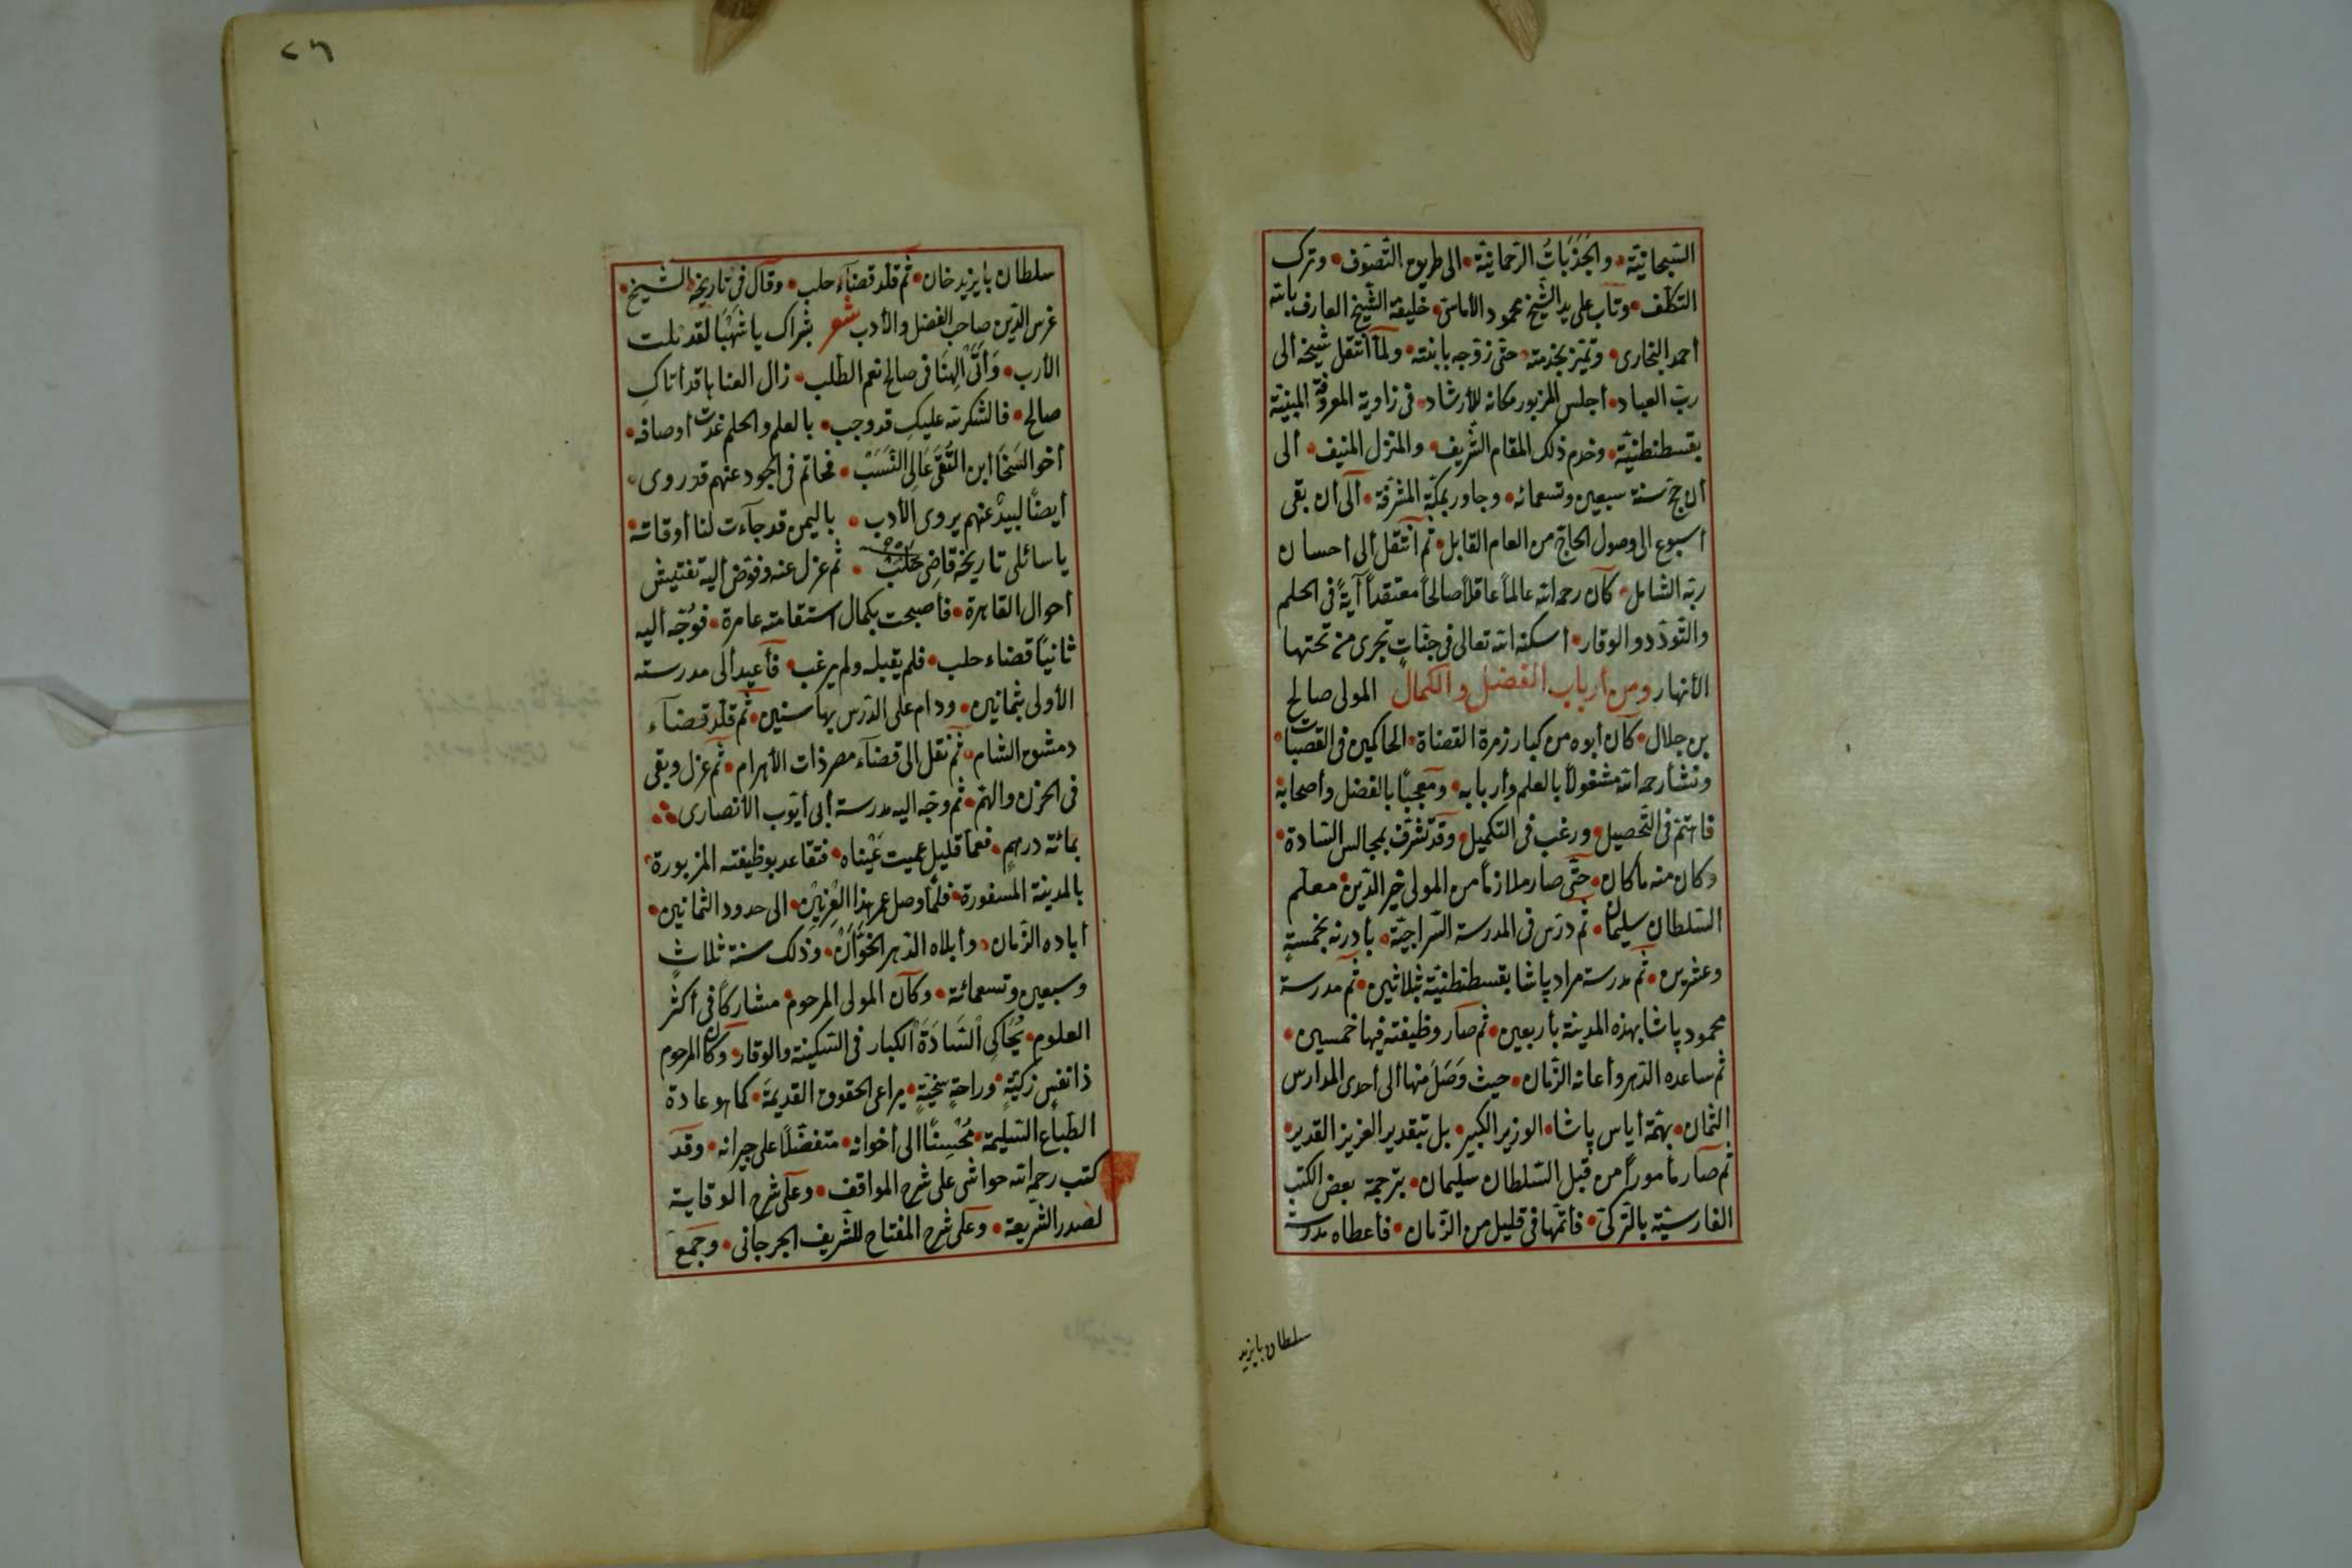 السبحانية، والجَذَبَاتُ الرحمانية، الى طريق التصوّف، وترك
التكلّف، وتاب على يد الشيخ محمود الأماسى، خليفة الشيخ العارف بالله
احمد البخارى، وتميّز بخدمته، حتى زوّجه بابنته، ولمّا انتقل شيخه الى
ربّ العباد، أجلس المزبور مكانه للأرشاد، فى زاوية المعروفة المبنيّة
بقسطنطنيّة، وخدم ذلك المقام الشريف، والمنزل المنيف، ألى
أن حجّ سنة سبعين وتسعمائه، وجاور بمكّة المشرّفة، ألى أن بقى
اسبوع الى وصول الحاج من العام القابل، ثم انتقل ألى احسان
ربّه الشامل، كان رحمه الله عالماً عاقلاً صالحاً معتقداً آيةً فى الحلم
والتّودّد والوقار، اسكنه الله تعالى فى جنّاتٍ تجرى من تحتها
الأنهار ومن أرباب الفضل والكمال المولى صالح
بن جلال، كان أبوه من كبار زمرة القضاة، الحاكمين فى القصبات،
ونشأ رحمه الله مشغولاً بالعلم وأربابه، ومعجبًا بالفضل وأصحابه
فاهتمّ فى التّحصيل، ورغب فى التكميل، وقد تشرّف بمجالس السّادة،
وكان منه ما كان، حتّى صار ملازماً من المولى خير الدّين، معلّم
السّلطان سليمان، ثم درّس فى المدرسة السّراجيّة، بأدرنه بخمسةٍ
وعشرين، ثم مدرسة مراد پاشا بقسطنطنيّة بثلاثين، ثم مدرسة
محمود پاشا بهذه المدينة بأربعين، ثم صار وظيفته فيها خمسين،
ثم ساعده الدّهر وأعانه الزّمان، حيث وَصَلَ منها ألى أحدى المدارس
الثمان، بهمّة أياس پاشا، الوزير الكبير، بل بتقدير العزيز القدير،
ثم صار مأموراً من قبل السّلطان سليمان، بترجمة بعض الكتب
الفارسيّة بالتركىّ، فأتمّها فى قليل من الزّمان، فأعطاه مدرسة
سلطان بايزيد
٢٦
سلطان بايزيد خان، ثم قلّد قضاء حلب، وقال فى تاريخه الشيخ،
غرس الدّين صاحب الفضل والأدب شعر بشراك يا شهبا لقد نلت
الأرب، وَأَتَى الهنا فى صالح نعم الطلب، زال العنا ها قد أتاكِ
صالح، فالشكر لله عليكِ قد وجب، بالعلم والحلم غدت أوصافه،
أخو السخا ابن التُّقى عَالى النّسَبْ، فحاتم فى الجود عنهم قد روى،
أيضًا لبيدٌ عنهم يروى الأدب، باليمن قد جاءت لنا أوقاته،
يا سائلى تاريخه قاضِى حَلَبْ، ثم عزل عنه وفوّض أليه تفتيش
أحوال القاهرة، فأصبحت بكمال استقامته عامرة، فوُجّه أليه
ثانيًا قضاء حلب، فلم يقبله ولم يرغب، فأعيد ألى مدرسته
الأولى بثمانين، ودام على الدّرس بها سنين، ثم قلّد قضاء
دمشق الشام، ثم نقل الى قضاء مصر ذات الأهرام، ثم عزل وبقى
فى الحزن والهمّ، ثم وجّه اليه مدرسة أبى أيّوب الأنصارى،
بمائة درهمٍ، فعمّا قليل عميت عَيْناه، فتقاعد بوظيفته المزبورة،
بالمدينة المسفورة، فلمّا وصل عمر هذا العزيز، الى حدود الثمانين،
أباده الزمان، وأبلاه الدّهر الخوّان، وذلك سنة ثلاثٍ
وسبعين وتسعمائة، وكان المولى المرحوم، مشاركًا فى أكثر
العلوم، يُحَاكى السَّادَةَ الكبار فى السّكينة والوقار، وكان المرحوم
ذا نفسٍ زكيّةٍ، وراحةٍ سخيّةٍ، يراعى الحقوق القديمَة، كما هو عادة
الطباع السّليمة، مُحْسِنًا الى أخوانه، متفضّلًا على جيرانه، وقد
كتب رحمه الله حواشى على شرح المواقف، وعلى شرح الوقاية
لصدر الشّريعة، وعلى شرح المفتاح للشّريف الجرجانى، وجمع